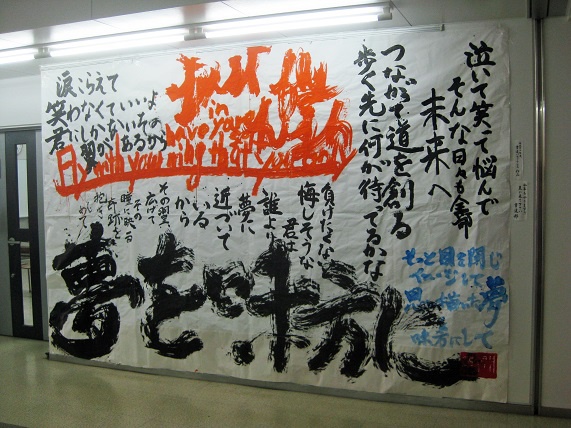 泣いて笑って悩んで
そんな日々も全部
未来へ
つながる道を創る
歩く先に何が待てるかな
涙こらえて
笑わなくていいよ
君にしかないその
翼があるから
Fly with your wing
in your
負けたくない
悔しそうな
君は
誰より
夢に
近づいて
いる
から
その翼
広げて
その
瞳に映る
奇跡を
夢を味方に
もっと目を閉じ
イメージして
思い描いた夢
味方にして